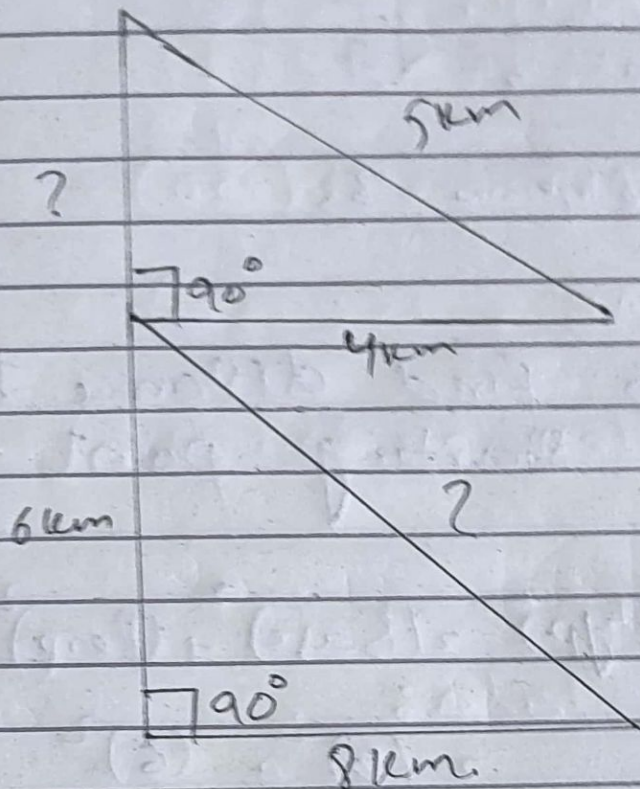 5km
?
90°
4km
6km
?
90°
8km.